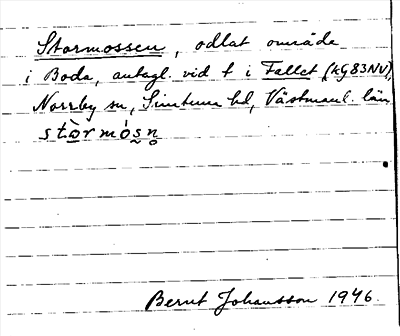 Stormossen, odlat område
i Boda, antagl. vid t i Fallet (kg83NV),
Norrby sn, Simtuna hd, Västmanl. län.
stòrmósn̥.
Bernt Johansson 1946.